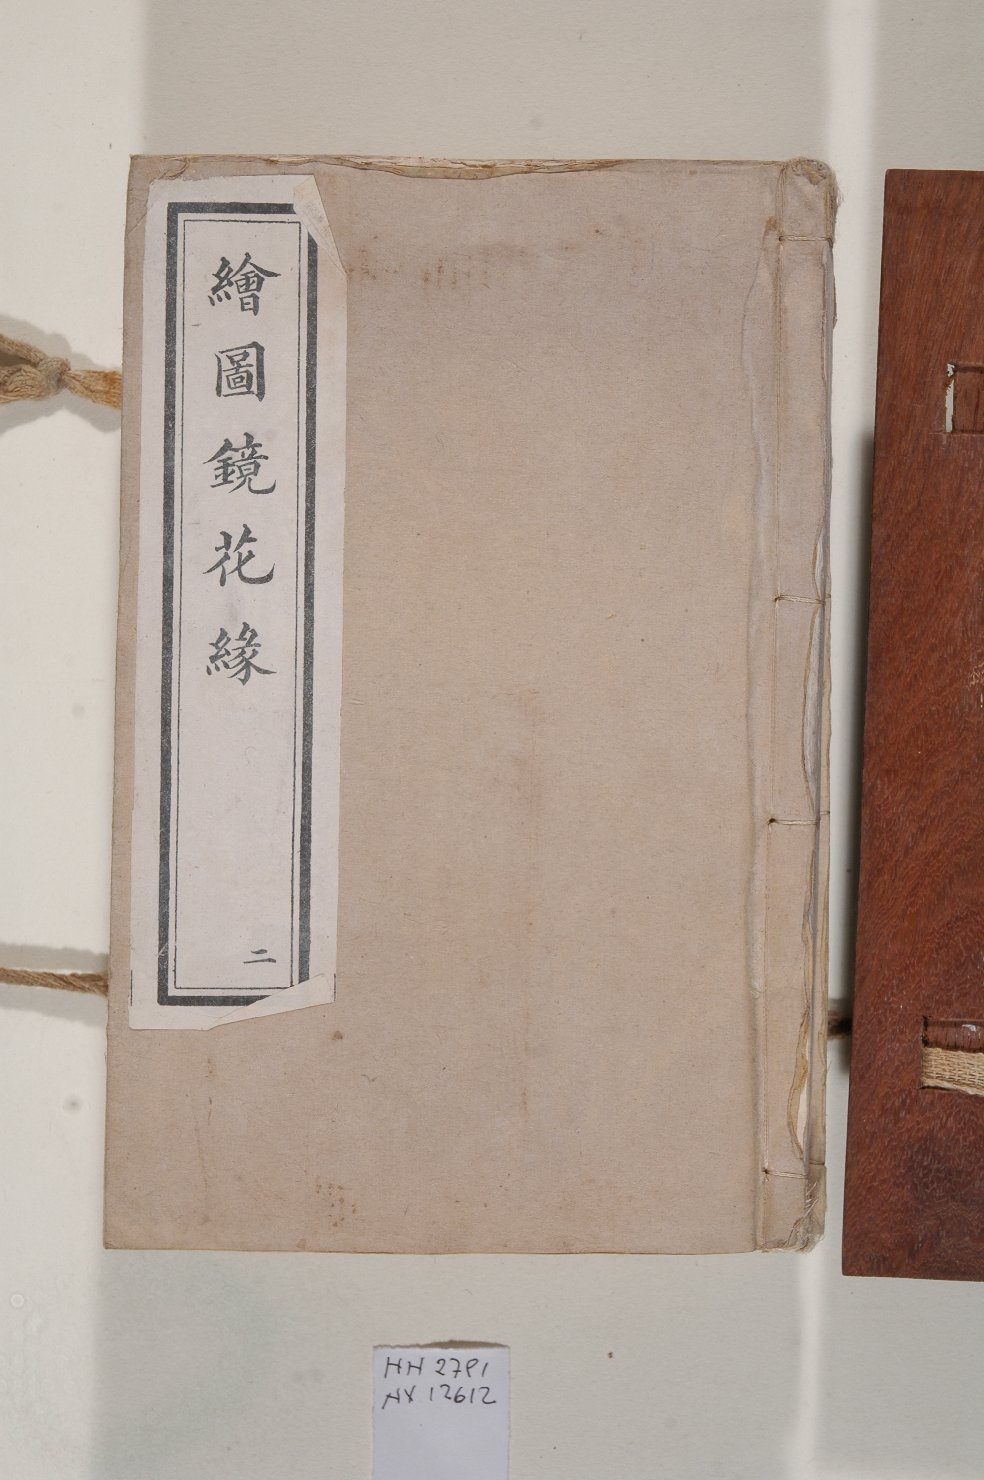 繪圖鏡花緣
二
HH 2791
NX 12612